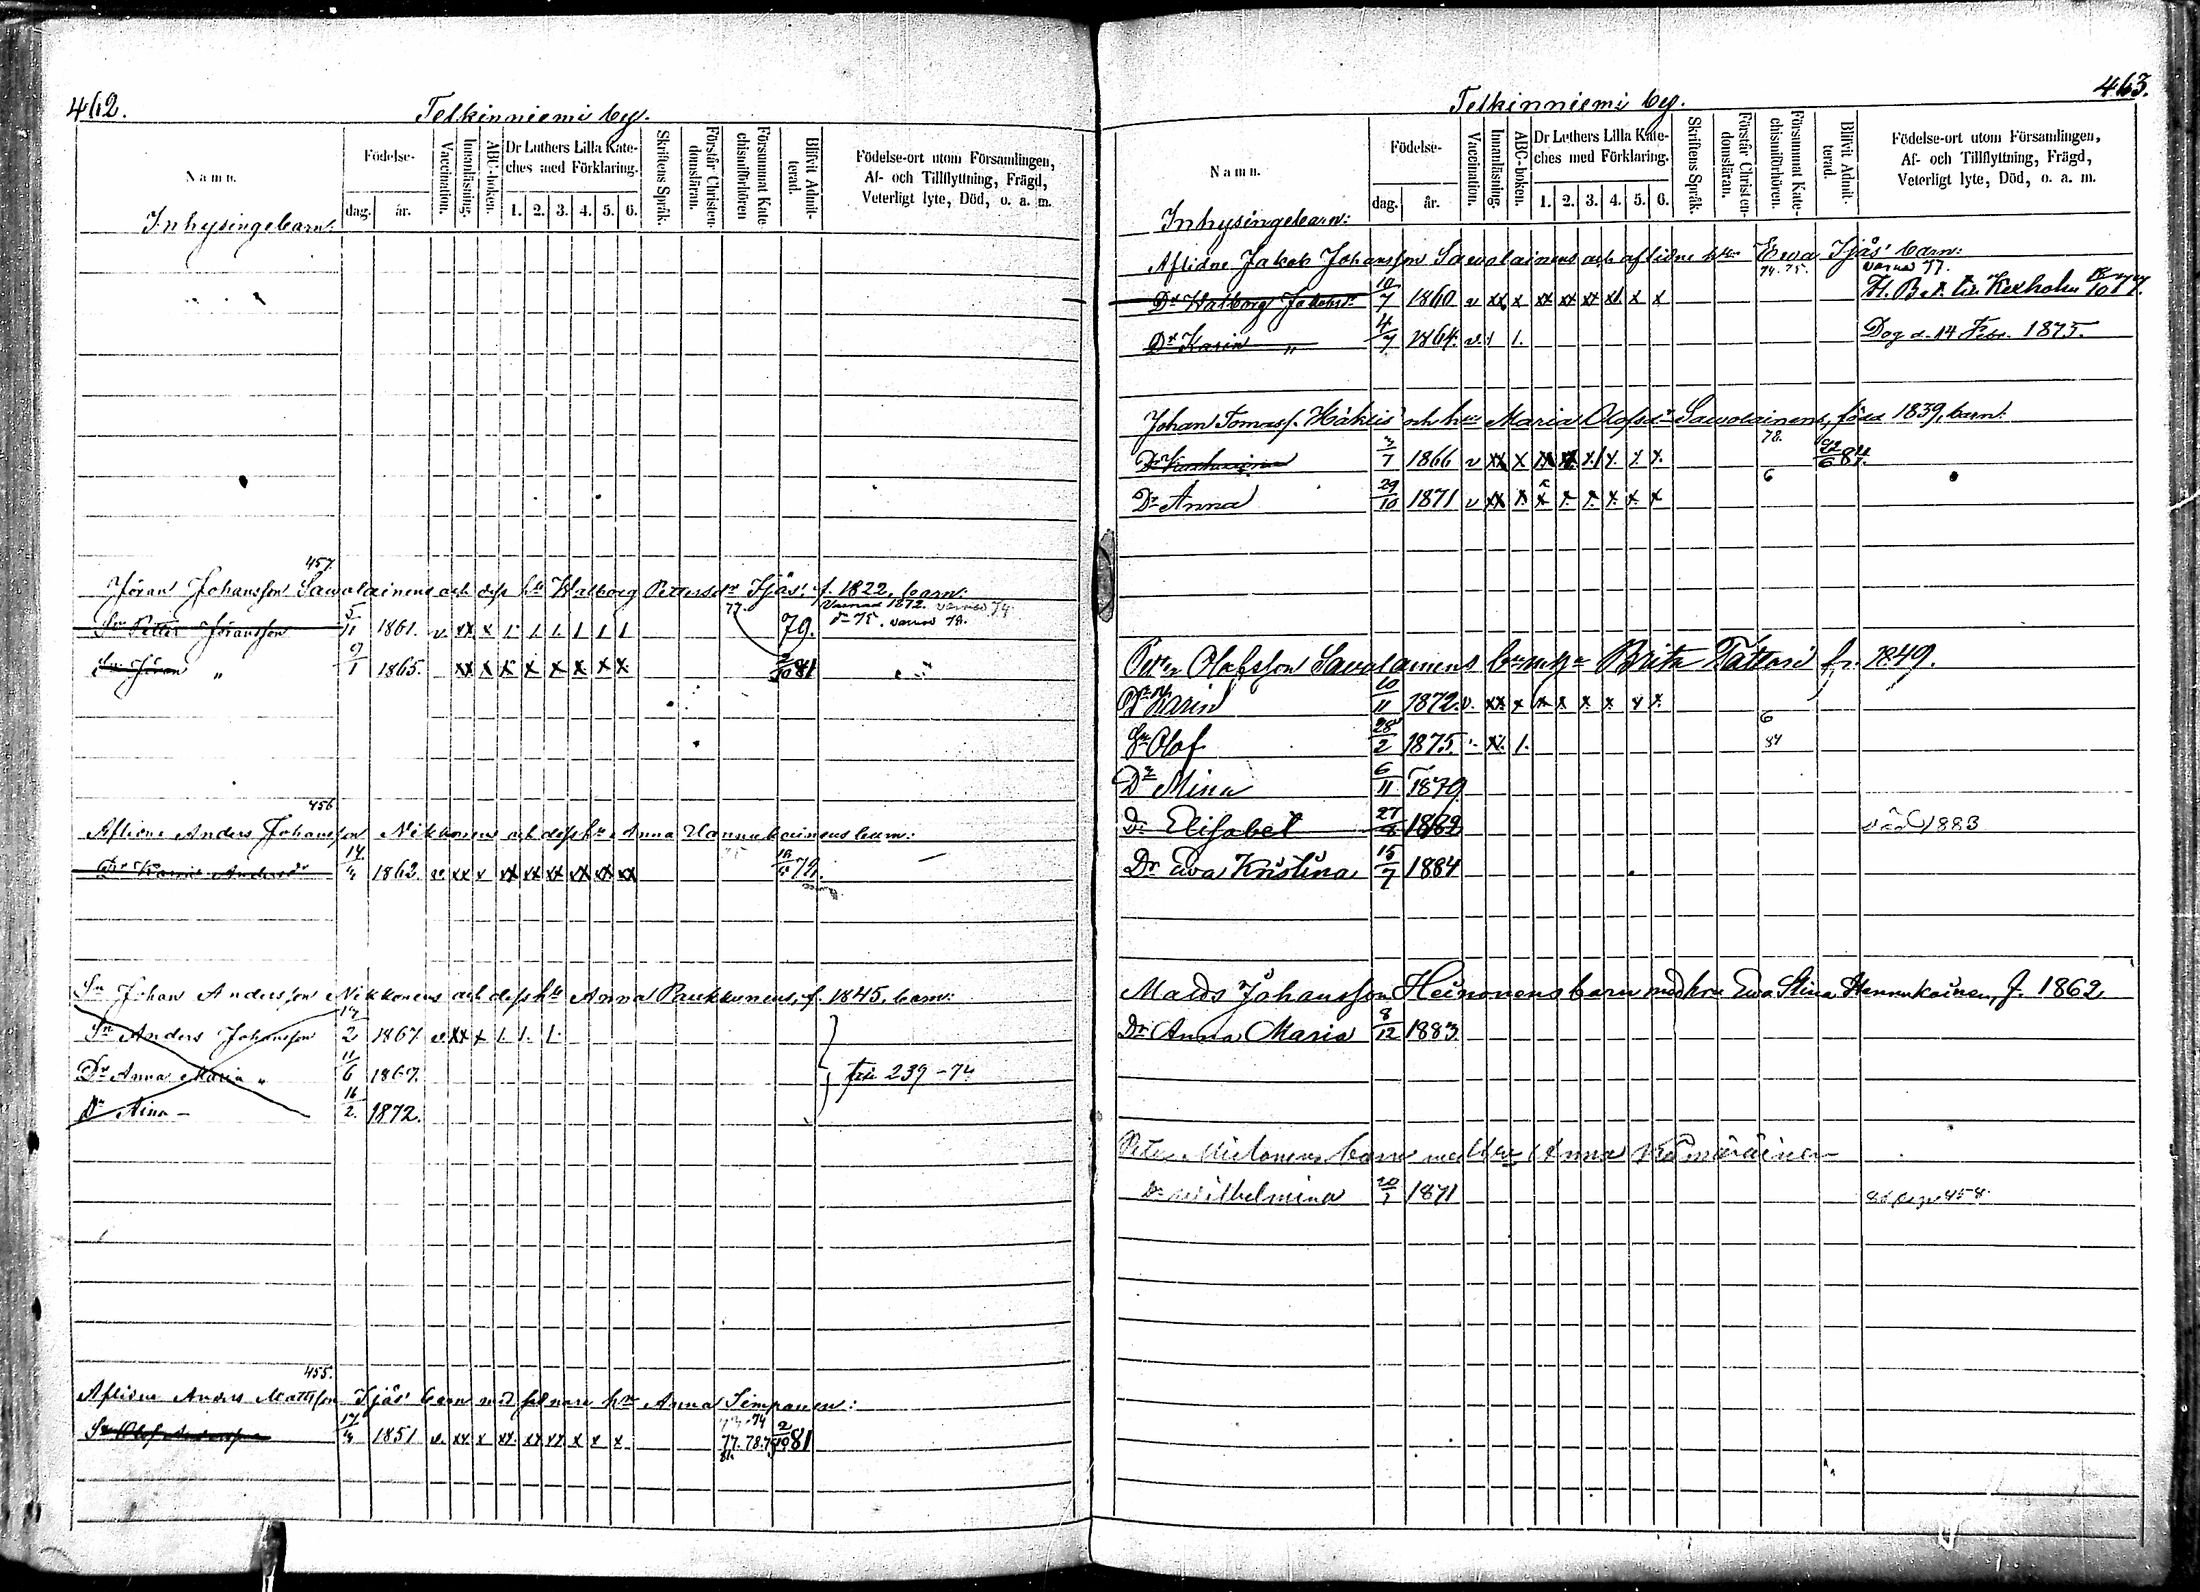 462.
Telkinniemi by.
Namn.
Födelse-
dag.
år.
Vaccination.
Innanläsning.
ABC-boken.
Dr Luthers Lilla Kate-
ches med Förklaring.
1. 2. 3. 4. 5. 6.
Skriftens Språk.
Förstår Christen-
domsläran.
Försummat Kate-
chismiförhören
Blifvit Admit-
terad.
Födelse-ort utom Församlingen,
Af- och Tillflyttning, Frägd,
Veterligt lyte, Död, o. a. m.
Inhysingebarn:
457.
Jöran Johansson Sawolainens och dess h. Walborg Pettersdr Ijäs', f. 1822, barn:
77. Varnad 1872. varnad 74.
Sn Petter Jöransson 5/11 1861. v. xx x 1. 1. 1. 1. 1. 1 79. d:o 75. varnad 78.
Sn Jöran " 9/1 1865. xx x x x x x x x 2/10 81
456
Aflidne Anders Johansson Nikkonens och dess h. Anna Hannukainens barn:
Dr Karin Andersdr 14/4 1862. v xx x xx xx xx xx xx xx 79.
Sn Johan Andersson Nikkonens och dess h. Anna Paukkunens, f. 1845, barn:
Sn Anders Johansson 2 1867 v. xx x 1. 1. 1.
Dr Anna Maria " 11/6 1867. 239-74
Dr Aina - 16/2. 1872.
455.
Aflidne Anders Mattsson Ijäs' barn med sednare h. Anna Simpanen:
Sn Olof Andersson 17/4 1851 v. xx x xx. xx xx x x x 77. 78. 2/10 81
463.
Telkinniemi by.
Namn.
Födelse-
dag.
år.
Vaccination.
Innanläsning.
ABC-boken.
Dr Luthers Lilla Kate-
ches med Förklaring.
1. 2. 3. 4. 5. 6.
Skriftens Språk.
Förstår Christen-
domsläran.
Försummat Kate-
chismiförhören.
Blifvit Admit-
terad.
Födelse-ort utom Församlingen,
Af- och Tillflyttning, Frägd,
Veterligt lyte, Död, o. a. m.
Inhysingebarn:
Aflidne Jakob Johansson Sawolainens och aflidne h. Ewa Ijäs' barn:
74. 75. varnad 77.
Dr Walborg Jakobsdr 10/7 1860 v xx x xx xx xx xx x x Fl. Bet. till Kexholm 77.
Dr Karin " 4/7 1864. v. 1 1. Dog d. 14 Febr. 1875.
Johan Tomass. Häklis' och h. Maria Olofsdr Sawolainens, född 1839, barn:
3/7 1866 v xx x 78. 84.
Dr Anna 29/10 1871 v xx x. x x x. x. x. x 6
Petter Olofsson Sawolainens barn Brita Tattari f. 1849.
Dr Karin 10/11 1872. v. xx. x x x. x. x. x x.
Sn Olof 28/2 1875. xx. 1. 6 84
Dr Mina 6/11 1879
Dr Elisabet 27/8 1882 död 1883
Dr Ewa Kristina 15/7 1884
Matts Johansson Heinonens barn med hu Ewa Stina Hannukainen, f. 1862
Dr Anna Maria 8/12 1883.
Peter Mielonens barn med h. Anna
Dr Wilhelmina 20/1 1871 458